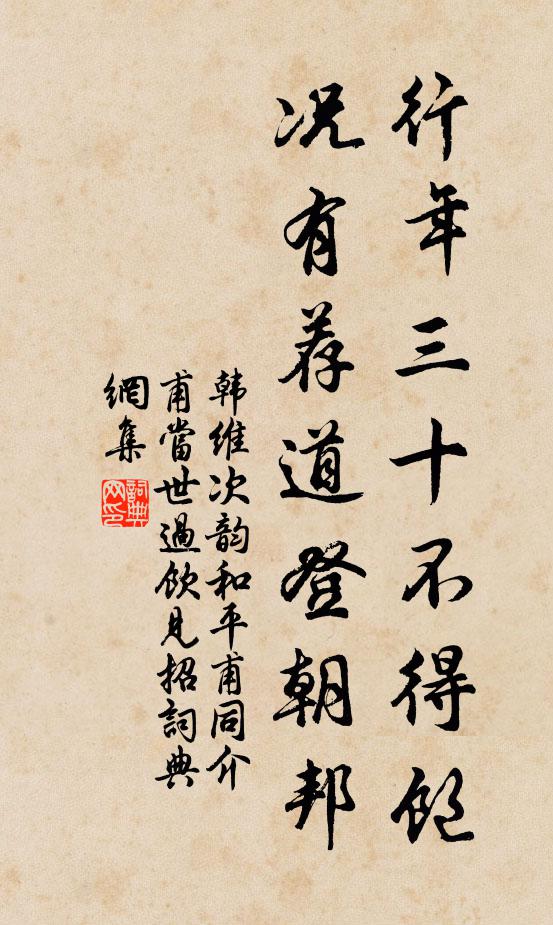 行年三十不得飽
况有荐道登朝邦
韩维次韵和平甫同介
甫當世過飲見招詞典
網集
詞典
网印